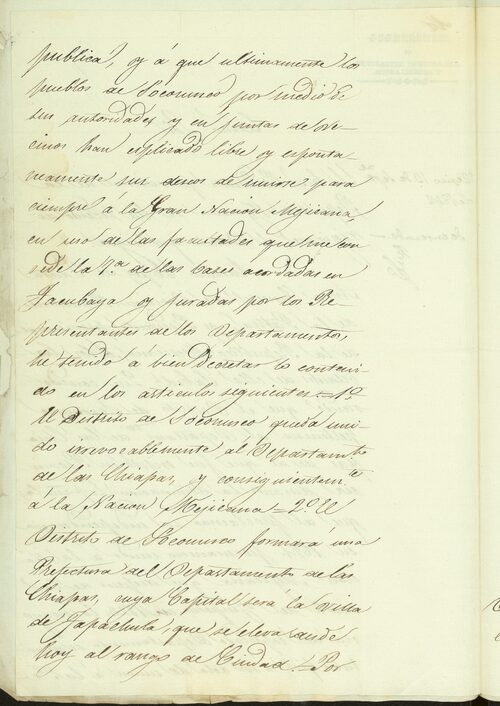 publica, y á que ultimamente los
pueblos de Soconusco por medio de
sus autoridades y en juntas de ve-
cinos han esplicado libre y espontá-
neamente sus deseos de unirse para
siempre á la Gran Nacion Mejicana,
en uso de las facultades que me con-
cede la 7.a de las bases acordadas en
Tacubaya y juradas por los Re-
presentantes de los Departamentos,
he tenido á bien decretar lo conteni-
do en los articulos siguientes = 1.o
El Distrito de Soconusco queda uni-
do irrevocablemente al Departam.to
de las Chiapas, y consiguientem.te
á la Nacion Mejicana = 2.o El
Distrito de Soconusco formará una
Prefectura del Departamento de las
Chiapas, cuya Capital será la Villa
de Tapachula, que se eleva desde
hoy al rango de Ciudad = Por